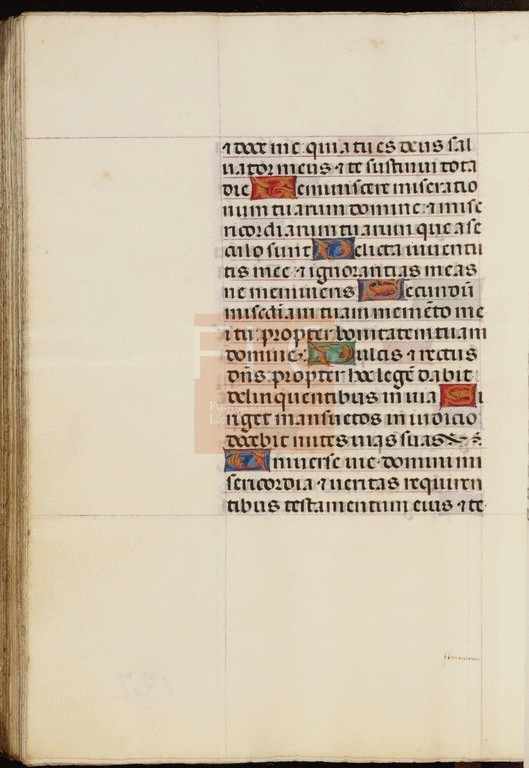 ⁊ doce me quia tu es deus sal
uator meus ⁊ te sustinui tota
die Reminiscere miseratio
num tuarum domine ⁊ mise
ricordiarum tuarum que a se
culo sunt Delicta iuuentu
tis mee ⁊ ignorantias meas
ne memineris Secundū
misedīam tuam memēto me
i tu propter bonitatem tuam
domine Dulcis ⁊ rectus
dn̄s propter hoc legē dabit
delinquentibus in uia Di
riget mansuetos in iudicio
docebit mites uias suas
Uniuerse uie domini mi
sericordia ⁊ ueritas requiren
tibus testamentum eius ⁊ te